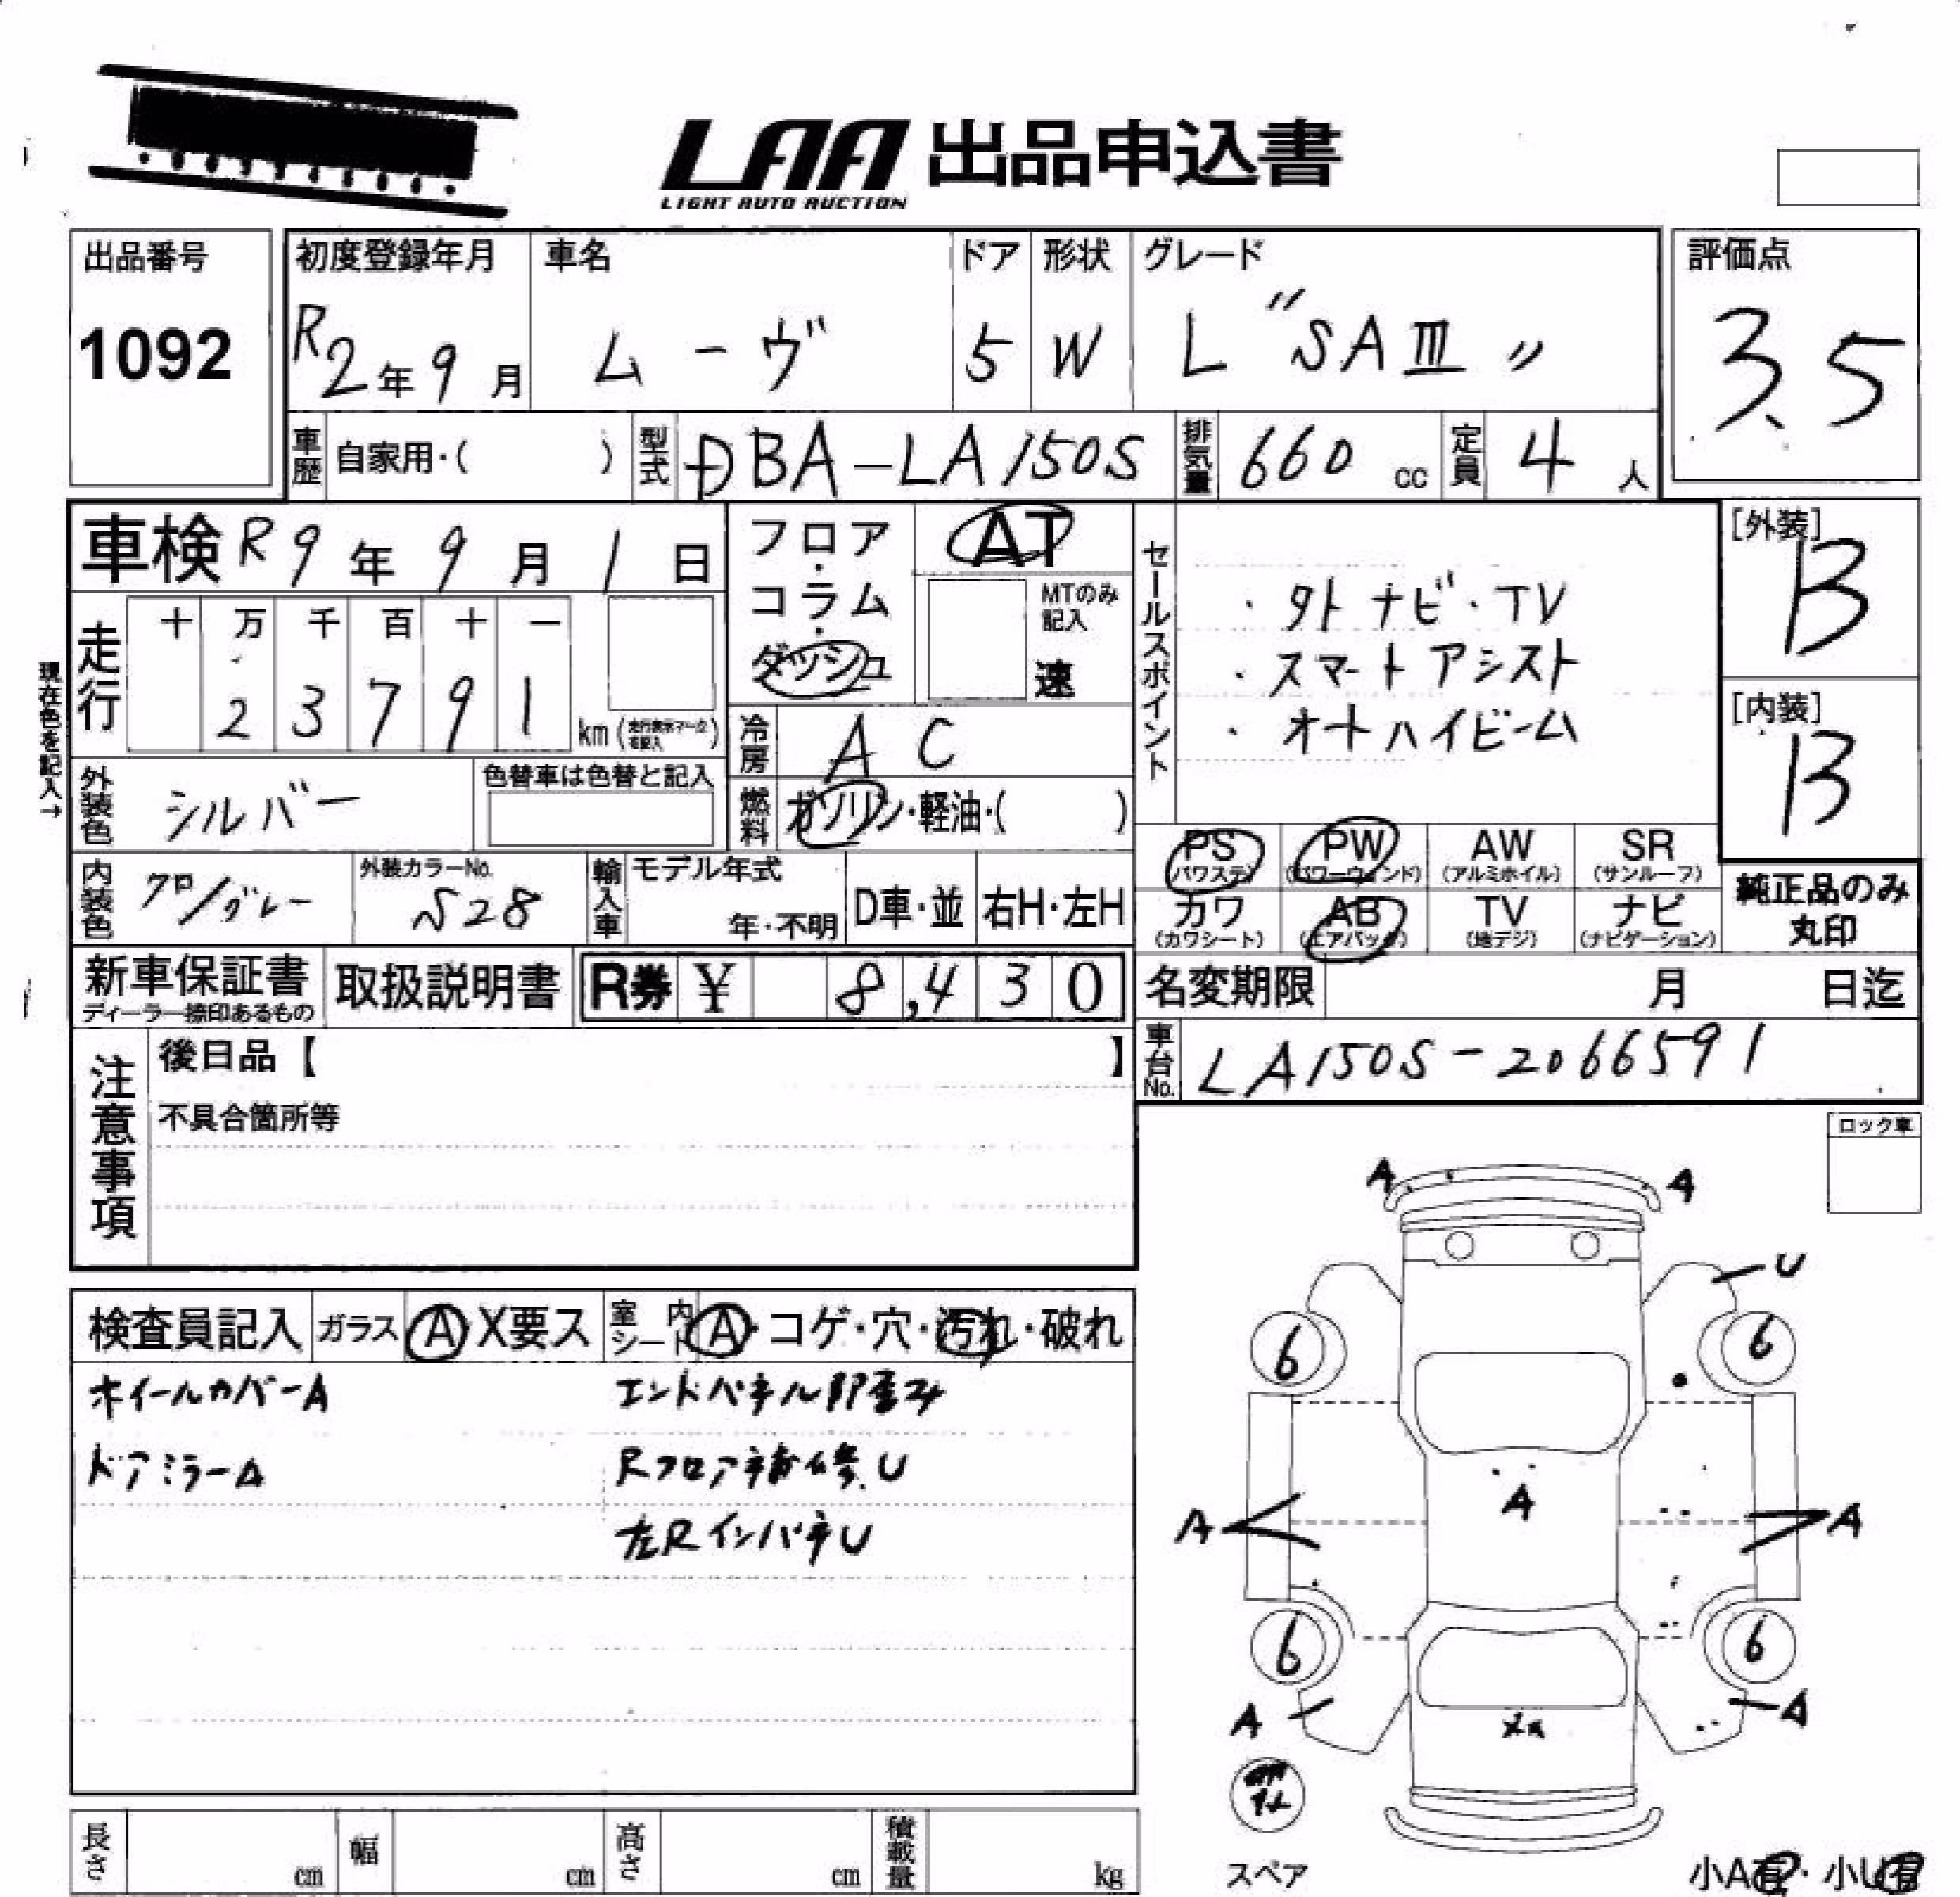 LAA 出品申込書
LIGHT AUTO AUCTION
出品番号
1092
初度登録年月
R2年9月
車名
ムーヴ
ドア
5
形状
W
グレード
L "SAⅢ"
評価点
3.5
車歴 自家用・( )
型式 DBA-LA150S
排気量 660 cc
定員 4 人
車検 R9年9月1日
走行
十 万 千 百 十 一
2 3 7 9 1 km
現在色を記入→
フロア・コラム・ダッシュ
AT
MTのみ記入
速
冷房 A C
燃料 ガソリン・軽油・( )
セールスポイント
・外ナビ・TV
・スマートアシスト
・オートハイビーム
[外装]
B
[内装]
B
外装色 シルバー
色替車は色替と記入
内装色 クロ/グレー
外装カラーNo.
S28
輸入車 モデル年式
年・不明
D車・並
右H・左H
PS (パワステ)
PW (パワーウィンド)
AW (アルミホイル)
SR (サンルーフ)
カワ (カワシート)
AB (エアバック)
TV (地デジ)
ナビ (ナビゲーション)
純正品のみ
丸印
新車保証書
ディーラー捺印あるもの
取扱説明書
R券 ¥ 8,430
名変期限 月 日迄
車台No. LA150S-2066591
注意事項
後日品【 】
不具合箇所等
ロック車
検査員記入
ガラス A・X要ス
室内シート A・コゲ・穴・汚れ・破れ
ホイールカバーA
ドアミラーA
エンドパネル部歪み
Rフロア補修U
左RインパネU
A A
U
6 6
A
A A
6 6
A A
スペア
小A有・小U有
長さ cm
幅 cm
高さ cm
積載量 kg